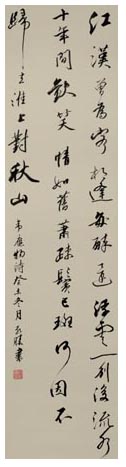 江漢曾為客相逢每醉還浮雲一別後流水
十年間歡笑情如舊蕭疏鬢已斑何因不
歸去淮上對秋山
韋應物詩癸丑冬月書